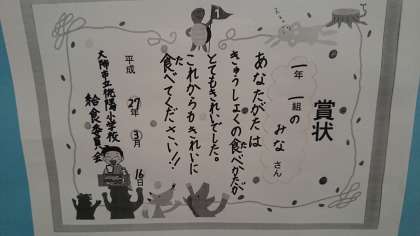 賞状
一年 一組の
みな さん
あなたがたは
きゅうしょくの食べかたが
とてもきれいでした。
これからもきれいに
食べてください!!
平成 27年 3月 16日
小学校
給食委員会